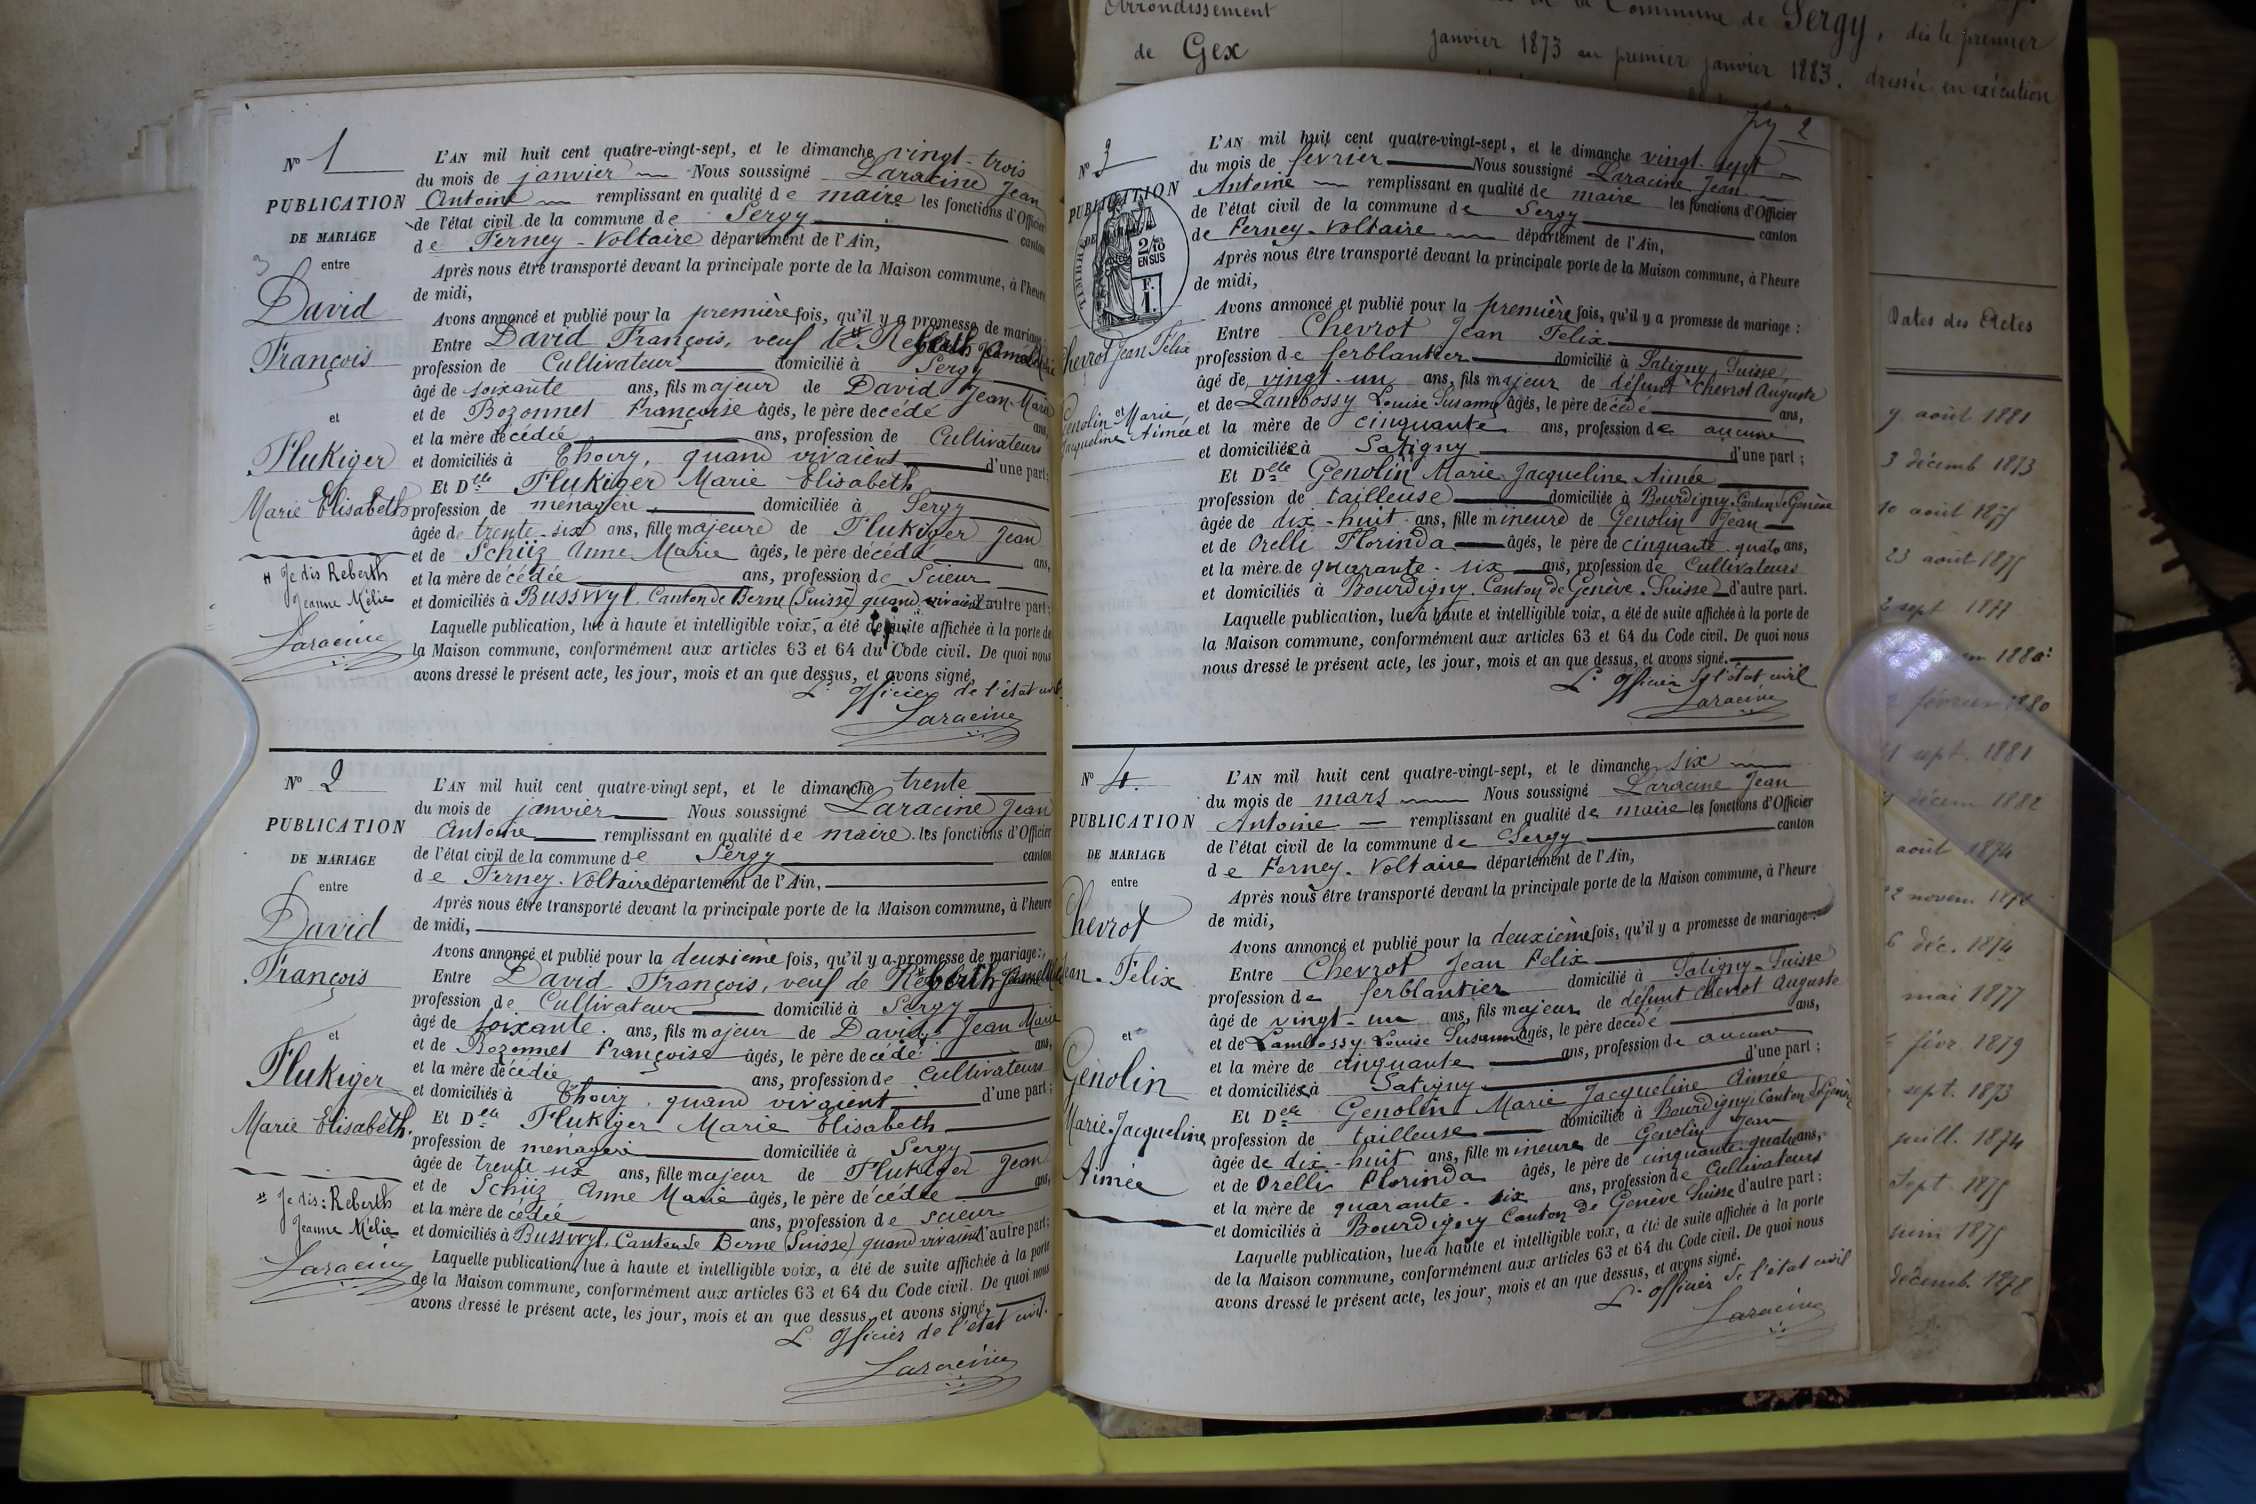 Nº 1
PUBLICATION
DE MARIAGE
entre
David
François
et
Flukiger
Marie Elisabeth
# Je dis Reberth
Jeanne Mélie
Laracine
L'AN mil huit cent quatre-vingt-sept, et le dimanche vingt-trois
du mois de janvier Nous soussigné Laracine Jean
Antoine remplissant en qualité de maire les fonctions d'Officier
de l'état civil de la commune de Sergy canton
de Ferney-Voltaire département de l'Ain,
Après nous être transporté devant la principale porte de la Maison commune, à l'heure
de midi,
Avons annoncé et publié pour la première fois, qu'il y a promesse de mariage:
Entre David François, veuf de Reberth
profession de Cultivateur domicilié à Sergy
âgé de soixante ans, fils majeur de David Jean-Marie
et de Bozonnet Françoise âgés, le père décédé ans,
et la mère décédée ans, profession de Cultivateurs
et domiciliés à Thoiry, quand vivaient d'une part;
Et Dlle Flukiger Marie Elisabeth
profession de ménagère, domiciliée à Sergy
âgée de trente-six ans, fille majeure de Flukiger Jean
et de Schüz Anne Marie âgés, le père décédé ans,
et la mère décédée ans, profession de Scieur
et domiciliés à Busswyl, Canton de Berne (Suisse) quand vivaient d'autre part;
Laquelle publication, lue à haute et intelligible voix, a été de suite affichée à la porte de
la Maison commune, conformément aux articles 63 et 64 du Code civil. De quoi nous
avons dressé le présent acte, les jour, mois et an que dessus, et avons signé.
L'officier de l'état civil
Laracine
Nº 2
PUBLICATION
DE MARIAGE
entre
David
François
et
Flukiger
Marie Elisabeth.
# Je dis: Reberth
Jeanne Mélie
Laracine
L'AN mil huit cent quatre-vingt sept, et le dimanche trente
du mois de janvier Nous soussigné Laracine Jean
Antoine remplissant en qualité de maire les fonctions d'Officier
de l'état civil de la commune de Sergy canton
de Ferney-Voltaire département de l'Ain,
Après nous être transporté devant la principale porte de la Maison commune, à l'heure
de midi,
Avons annoncé et publié pour la deuxième fois, qu'il y a promesse de mariage:
Entre David François, veuf de Reberth
profession de Cultivateur domicilié à Sergy
âgé de soixante ans, fils majeur de David Jean Marie
et de Bozonnet Françoise âgés, le père décédé ans,
et la mère décédée ans, profession de cultivateurs
et domiciliés à Thoiry, quand vivaient d'une part;
Et Delle Flukiger Marie Elisabeth
profession de ménagère domiciliée à Sergy
âgée de trente six ans, fille majeur de Flukiger Jean
et de Schüz Anne Marie âgés, le père décédé ans,
et la mère décédée ans, profession de scieur
et domiciliés à Busswyl, Canton de Berne (Suisse) quand vivaient d'autre part;
Laquelle publication, lue à haute et intelligible voix, a été de suite affichée à la porte
de la Maison commune, conformément aux articles 63 et 64 du Code civil. De quoi nous
avons dressé le présent acte, les jour, mois et an que dessus, et avons signé,
L'officier de l'état civil.
Laracine
2
Nº 3
PUBLICATION
DE
TIMBRE
2/10
EN SUS
F.
1.
Chevrot Jean Félix
et
Genolin Marie
Jacqueline Aimée
L'AN mil huit cent quatre-vingt-sept, et le dimanche vingt-sept
du mois de février Nous soussigné Laracine Jean
Antoine remplissant en qualité de maire les fonctions d'Officier
de l'état civil de la commune de Sergy canton
de Ferney-Voltaire département de l'Ain,
Après nous être transporté devant la principale porte de la Maison commune, à l'heure
de midi,
Avons annoncé et publié pour la première fois, qu'il y a promesse de mariage:
Entre Chevrot Jean Felix
profession de ferblantier domicilié à Satigny Suisse
âgé de vingt-un ans, fils majeur de défunt Chevrot Auguste
et de Lambossy Louise Susanne âgés, le père décédé ans,
et la mère de cinquante ans, profession de aucune
et domiciliée à Satigny d'une part;
Et Delle Genolin Marie Jacqueline Aimée
profession de tailleuse domiciliée à Bourdigny Canton de Genève
âgée de dix-huit ans, fille mineure de Genolin Jean
et de Orelli Florinda âgés, le père de cinquante-quatre ans,
et la mère de quarante-six ans, profession de Cultivateurs
et domiciliés à Bourdigny Canton de Genève. Suisse d'autre part.
Laquelle publication, lue à haute et intelligible voix, a été de suite affichée à la porte de
la Maison commune, conformément aux articles 63 et 64 du Code civil. De quoi nous
nous dressé le présent acte, les jour, mois et an que dessus, et avons signé.
L'officier de l'état civil
Laracine
Nº 4.
PUBLICATION
DE MARIAGE
entre
Chevrot
Jean-Félix
et
Genolin
Marie-Jacqueline
Aimée
L'AN mil huit cent quatre-vingt-sept, et le dimanche six
du mois de mars Nous soussigné Laracine Jean
Antoine remplissant en qualité de maire les fonctions d'Officier
de l'état civil de la commune de Sergy canton
de Ferney-Voltaire département de l'Ain,
Après nous être transporté devant la principale porte de la Maison commune, à l'heure
de midi,
Avons annoncé et publié pour la deuxième fois, qu'il y a promesse de mariage:
Entre Chevrot Jean Felix
profession de ferblantier domicilié à Satigny-Suisse
âgé de vingt-un ans, fils majeur de défunt Chevrot Auguste
et de Lambossy Louise Susanne âgés, le père décédé ans,
et la mère de cinquante ans, profession de aucune
et domiciliée à Satigny d'une part;
Et Delle Genolin Marie Jacqueline Aimée
profession de tailleuse domiciliée à Bourdigny, Canton de Genève
âgée de dix-huit ans, fille mineure de Genolin Jean
et de Orelli Florinda âgés, le père de cinquante-quatre ans,
et la mère de quarante-six ans, profession de Cultivateurs
et domiciliés à Bourdigny Canton de Genève Suisse d'autre part;
Laquelle publication, lue à haute et intelligible voix, a été de suite affichée à la porte
de la Maison commune, conformément aux articles 63 et 64 du Code civil. De quoi nous
avons dressé le présent acte, les jour, mois et an que dessus, et avons signé.
L'officier de l'état civil
Laracine
Arrondissement
de Gex
la Commune de Sergy, dès le premier
janvier 1873 au premier janvier 1883. dressée en exécution
Dates des Actes
9 août 1881
3 décemb 1873
10 août 1875
23 août 1875
2 sept 1877
1880
février 1880
sept. 1881
décem 1882
août 1874
22 novem 1878
6 déc. 1874
mai 1877
févr. 1879
sept. 1873
juill. 1874
Sept. 1875
juin 1875
décemb. 1878